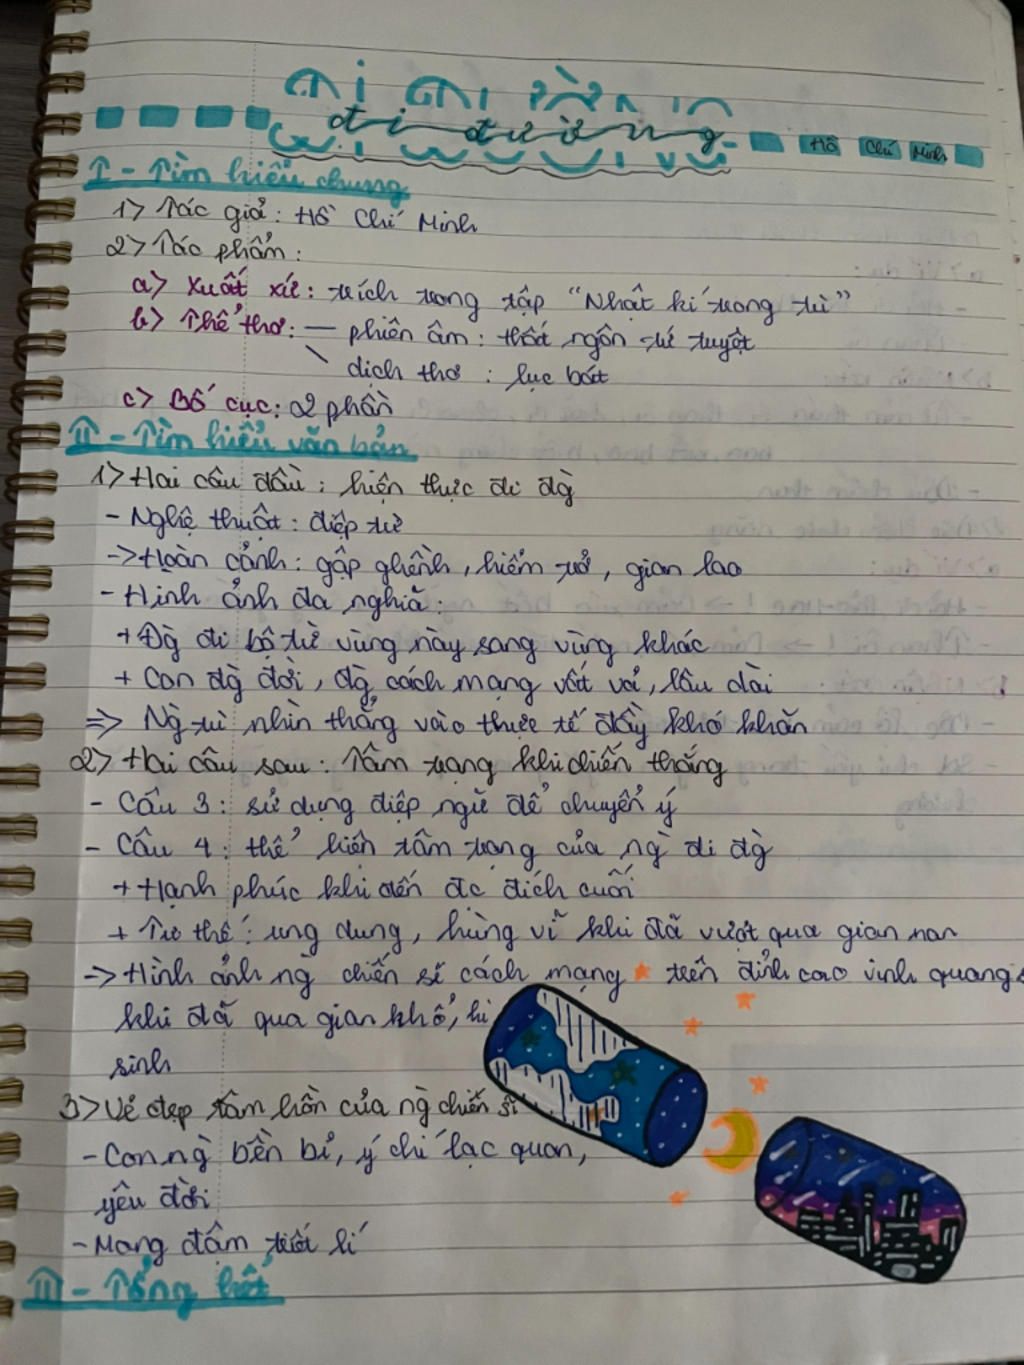 đi đường
Hồ Chí Minh
I - Tìm hiểu chung
1> Tác giả: Hồ Chí Minh
2> Tác phẩm:
a> Xuất xứ: trích trong tập "Nhật kí trong tù"
b> Thể thơ: — phiên âm: thất ngôn tứ tuyệt
\ dịch thơ: lục bát
c> Bố cục: 2 phần
II - Tìm hiểu văn bản
1> Hai câu đầu: hiện thực đi đg̀
- Nghệ thuật: điệp từ
-> Hoàn cảnh: gập ghềnh, hiểm trở, gian lao
- Hình ảnh đa nghiã:
+ Đg̀ đi bộ từ vùng này sang vùng khác
+ Con đg̀ đời, đg̀ cách mạng vất vả, lâu dài
=> Ng̀ tù nhìn thẳng vào thực tế đầy khó khăn
2> Hai câu sau: Tâm trạng khi chiến thắng
- Câu 3: sử dụng điệp ngữ để chuyển ý
- Câu 4: thể hiện tâm trạng của ng̀ đi đg̀
+ Hạnh phúc khi đến đc đích cuối
+ Tư thế: ung dung, hùng vĩ khi đã vượt qua gian nan
=> Hình ảnh ng̀ chiến sĩ cách mạng trên đỉnh cao vinh quang
khi đã qua gian khổ, hi
sinh
3> Vẻ đẹp tâm hồn của ng̀ chiến sĩ
- Con ng̀ bền bỉ, ý chí lạc quan,
yêu đời
- Mang đậm triết lí
III - Tổng kết